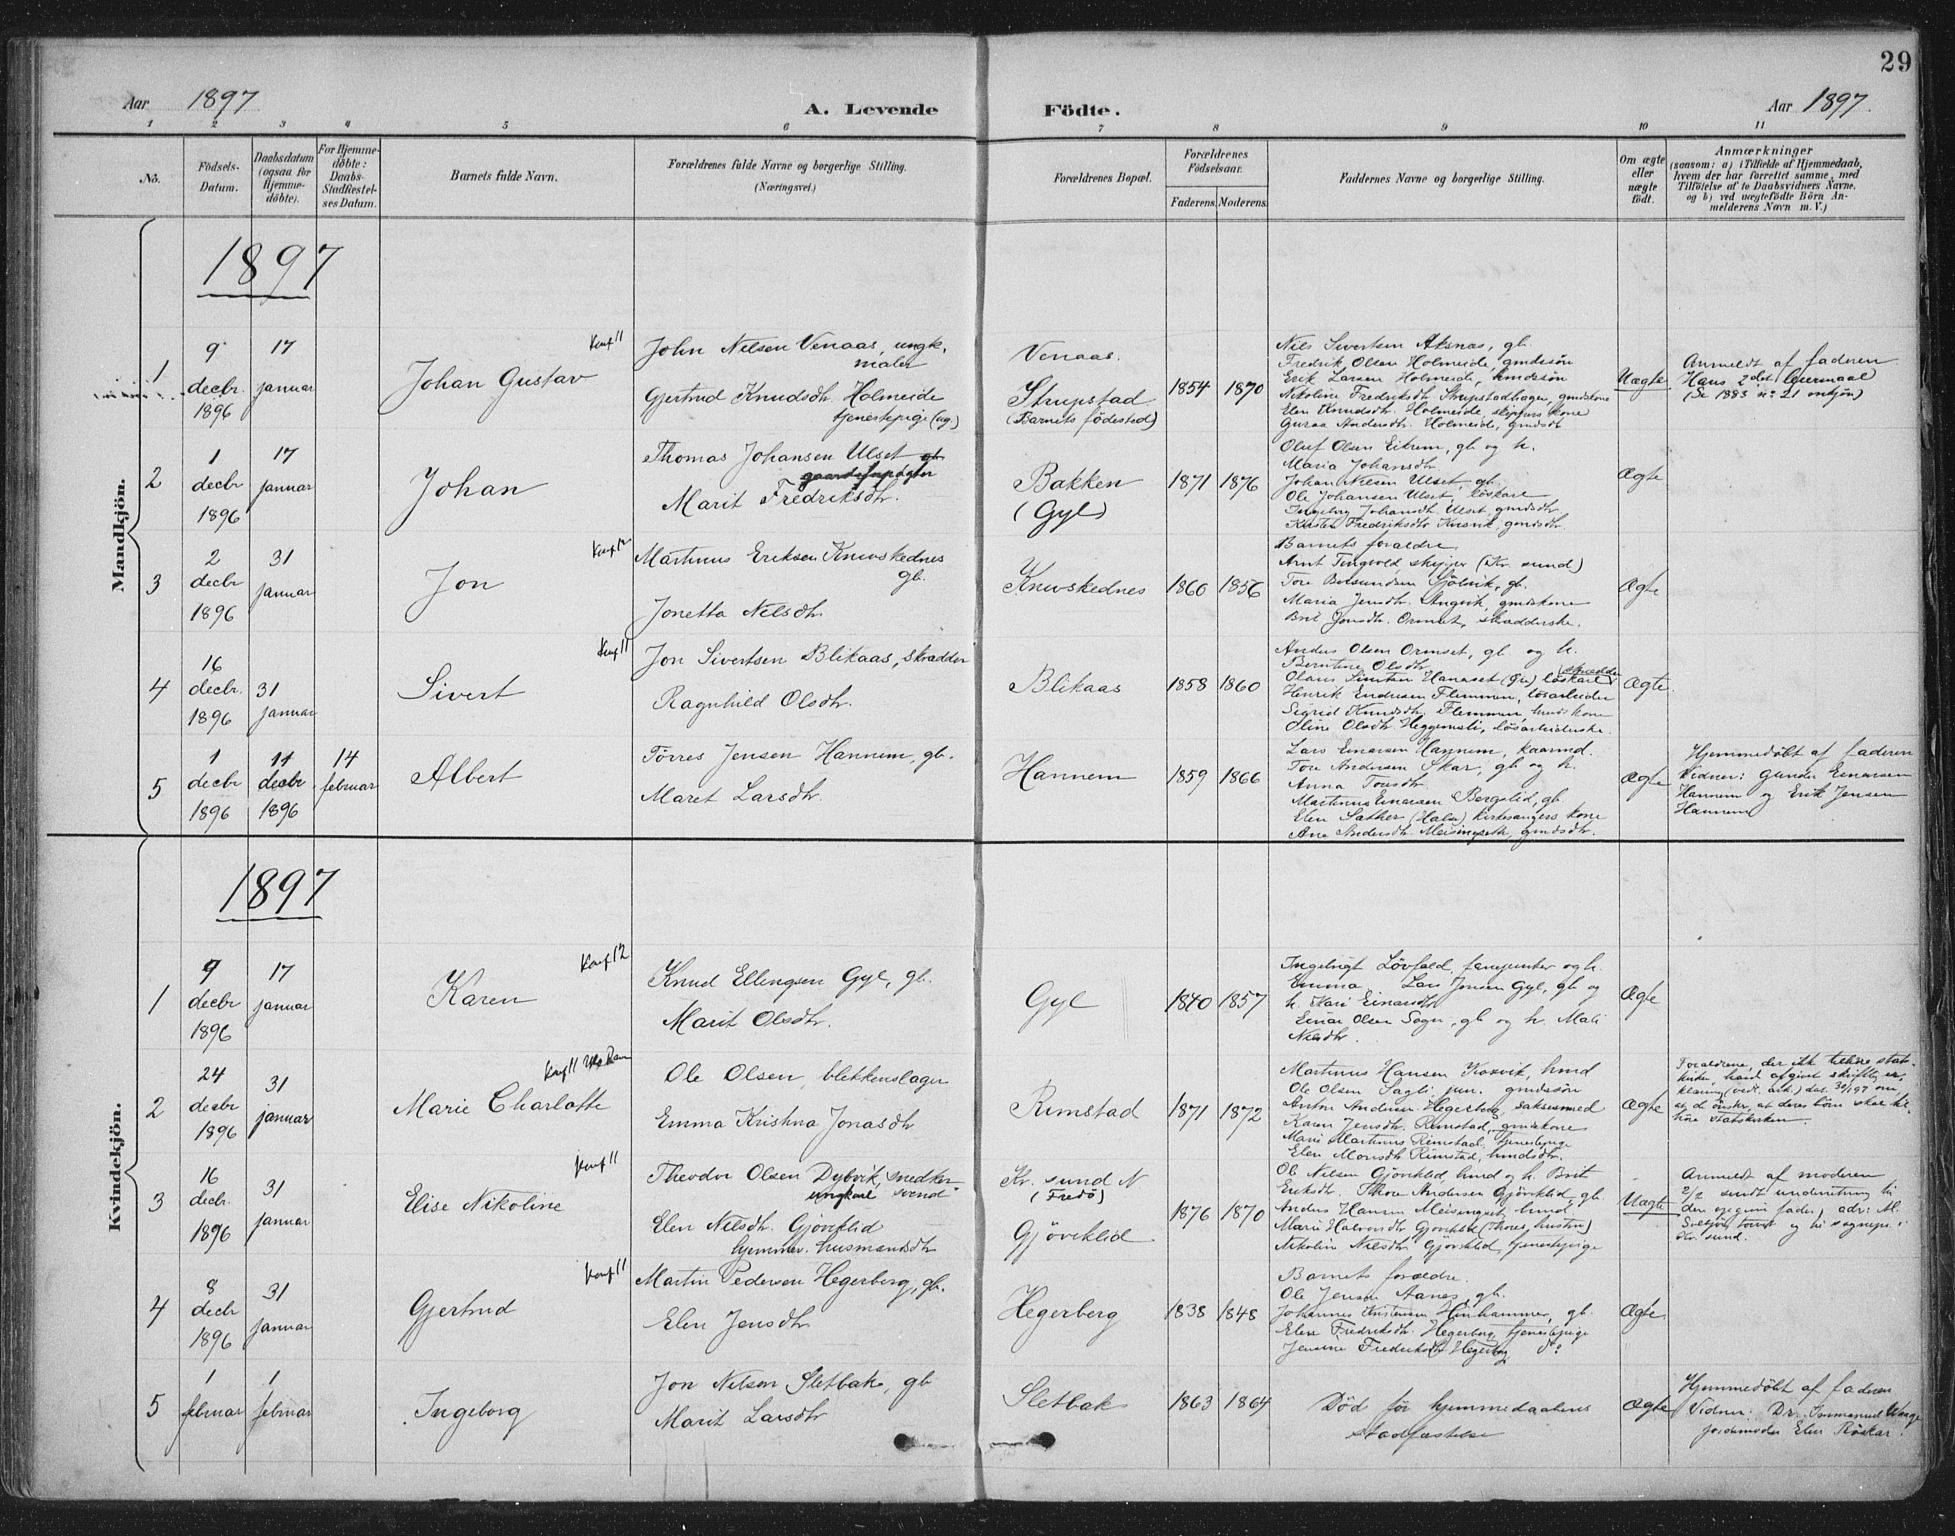 29
Aar 1897 A. Levende Födte. Aar 1897.
1 2 3 4 5 6 7 8 9 10 11
No.
Födsels-Datum.
Daabsdatum (ogsaa for Hjemme-döbte).
For Hjemme-döbte: Daabs-Stadfæstel-ses Datum.
Barnets fulde Navn.
Forældrenes fulde Navne og borgerlige Stilling.
(Næringsvei.)
Forældrenes Bopæl.
Forældrenes Födselsaar.
Faderens. Moderens.
Faddernes Navne og borgerlige Stilling.
Om ægte eller uægte födt.
Anmærkninger
(saasom: a) i Tilfælde af Hjemmedaab,
hvem der har forrettet samme, med
Tilföielse af to Daabsvidners Navne.
og b) ved uægtefödte Börn An-
melderens Navn m. V.)
Mandkjön.
1897
1
9 decbr. 1896
17 januar
Johan Gustav
Konf 11
John Nelsen Venaas, ungk.
maler
Gjertrud Knudsdtr. Holmeide
tjenestepige (ug)
Venaas.
Strupstad
(Barnets födested)
1854 1870
Nils Sivertsen Aksnæs, gb.
Fredrik Olsen Holmeide, gmdssön
Erik Larsen Holmeide, gmdssön
Nikoline Fredriksdtr. Strupstadhagen, gmdskone
Elen Knudsdtr. Holmeide, skippers kone
Guraa Andersdtr. Holmeide, gmdsdtr
Uægte
Anmeldt af faderen
Hans 2det leiermaal
(Se 1883 no 21 mkjön)
2
1 decbr 1896
17 januar
Johan
Thomas Johansen Ulset gb.
Marit Fredriksdtr.
Bakken
(Gyl)
1871 1876
Oluf Olsen Eikrem, gb. og h.
Maria Johansdtr
Johan Nilsen Ulset, gb.
Ole Johansen Ulset, löskarl
Ingeborg Johansdtr. Ulset, gmdsdtr.
Kirsten Fredriksdtr. gmdsdtr.
Ægte
3
2 decbr 1896
31 januar
Jon
Konf 12
Martinus Eriksen Knuvskednes
gb.
Jonetta Nilsdtr.
Knuvskednes
1860 1856
Barnets forældre.
Arnt Tingvold, skipper (Kr. sund)
Tore gb.
Maria Jensdtr. Angvik, gmdskone
Brit Jonsdtr. Ormset,
Ægte
4
16 decbr. 1896
31 januar
Sivert
Konf 11
Jon Sivertsen Blikaas, skrædder
Ragnhild Olsdtr.
Blikaas
1858 1860
Anders Olsen Ormset, gb. og h.
Berntine Olsdtr.
Olaus löskarl (skrædder)
Henrik Endresen Flemmen, lösarbeider
Sigrid Knudsdtr. Flemmen, husm kone
Oline Olsdtr. Heggemsli, lösarbeiderske.
Ægte.
5
1 decbr 1896
14 decbr 1896
14 februar
Albert
Törres Jensen Hannem, gb.
Maret Larsdtr.
Hannem
1859 1866
Lars Einarsen Hannem, kaarmd.
Tore Andersen Skar, gb. og h.
Anna Toresdtr.
Martinus Einarsen Bergslid, gb.
Elen Sæther (Halse) kirkesangers kone
Ane Andersdtr. Meisingseth, gmdsdtr.
Ægte
Hjemmedöbt af faderen
Vidner: Gunder Einarsen
Hannem og Erik Jensen
Hannem
Kvindekjön.
1897
1
9 decbr 1896
17 januar
Karen
Konf 12
Knud Ellingsen Gyl, gb.
Marit Olsdtr.
Gyl
1840 1857
Ingebrigt Lövfald, og h.
Emma. Lars Jensen Gyl, gb. og
h. Kari Einarsdtr.
Einar Olsen Sogn, gb. og h. Mali
Nilsdtr.
Ægte
2
24 decbr 1896
31 januar
Marie Charlotte
Konf 11
Ole Olsen, blikkenslager
Emma Kristina Jonasdtr
Rimstad
1871 1872
Martinus Hansen Koxvik, hmd
Ole Olsen jun. gmdssön
Anton Andersen Hegerberg, saksesmed
Karen Jensdtr. Rimstad, gmdskone
Marie Martinus Rimstad, tjenestepige
Elen Monsdtr Rimstad, hmdsdtr.
Ægte
Forældrene, der ikk tilhöre stats-
kirken, har afgivet skriftlig er-
klæring (vedl. ark.) dat. 30/1 97 om,
at d önsker, at deres börn skal til-
höre statskirken.
3
16 decbr. 1896
31 januar
Elise Nikoline
Konf 11
Theodor Olsen Dybvik, snedker-
ungkarl svend
Elen Nilsdtr. Gjövklid
hjemmev. husmandsdtr
Kr. sund N
(Fredö)
Gjövklid
1876 1870
Ole Nilsen Gjövklid, hmd og h. Brit
Eriksdtr. Thore Andersen Gjövklid, gb.
Anders Hansen Meisingset, hmd
Marie Halvorsdtr Gjövklid (Thores hustru)
Nikoline Nilsdtr Gjövklid, tjenestepige
Uægte
Anmeldt af moderen
2/2 sendt underretning til
den opgivne fader, adr: Al.
og til sognepr. i
Kr. sund.
4
8 decbr 1896
31 januar
Gjertrud
Konf 11
Martin Pedersen Hegerberg, gb.
Elen Jensdtr
Hegerberg
1838 1848
Barnets forældre.
Ole Jensen Aanes, gb.
Johannes Kristensen Hinhammer, gb.
Elen Fredriksdtr. Hegerberg, tjenestepige
Jensine Frederiksdtr Hegerberg do
Ægte
5
1 februar
1 februar
Ingeborg
Jon Nilsen Sletbak, gb
Marit Larsdtr
Sletbak
1863 1864
Död för hjemmedaabens
stadfæstelse
Ægte
Hjemmedöbt af faderen
Vidner: Dr. Immanuel Wange
jordemoder Elen Röskar.